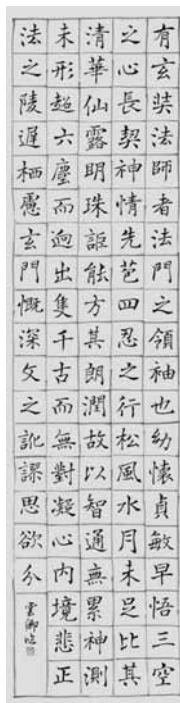 有玄奘法師者法門之領袖也幼懷貞敏早悟三空
之心長契神情先苞四忍之行松風水月未足比其
清華仙露明珠詎能方其朗潤故以智通無累神測
未形超六塵而迥出隻千古而無對凝心內境悲正
法之陵遲栖慮玄門慨深文之訛謬思欲分
雲卿臨